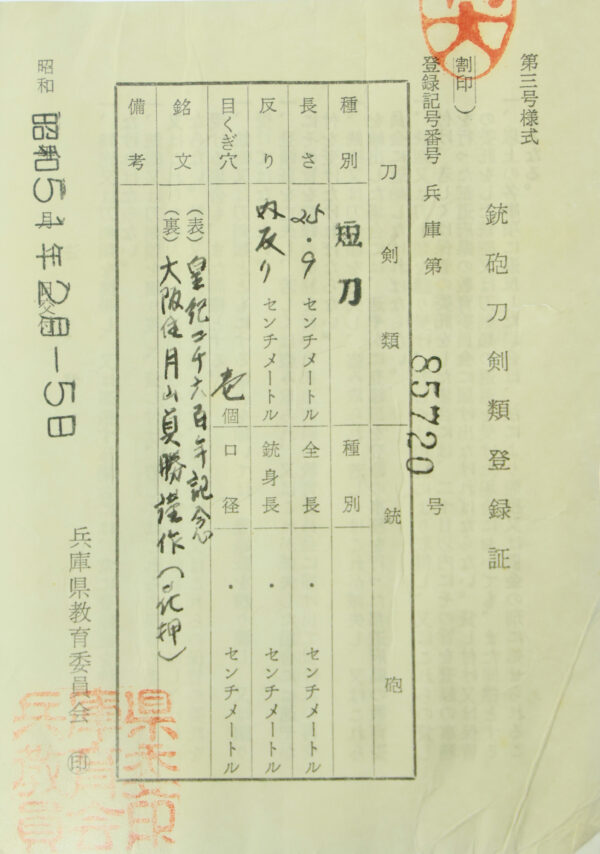 第三号様式
銃砲刀剣類登録証
割印
登録記号番号 兵庫第 85720 号
刀剣類
銃砲
種別 短刀
種別
長さ 25.9 センチメートル
全長 ・ センチメートル
反り 内反り センチメートル
銃身長 ・ センチメートル
目くぎ穴 壱個
口径 ・ センチメートル
銘文
(表) 皇紀二千六百年記念
(裏) 大阪住月山貞勝謹作(花押)
備考
昭和
昭和51年2月-5日
兵庫県教育委員会 ㊞